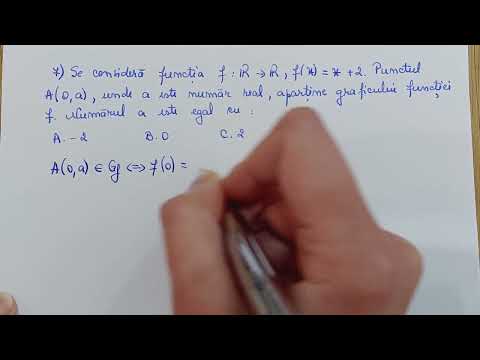 7) Se consideră funcția f : R → R, f(x) = x + 2. Punctul
A(0,a), unde a este număr real, aparține graficului funcției
f. Numărul a este egal cu :
A. -2 B. 0 C. 2
A(0,a) ∈ Gf ⇔ f(0) =